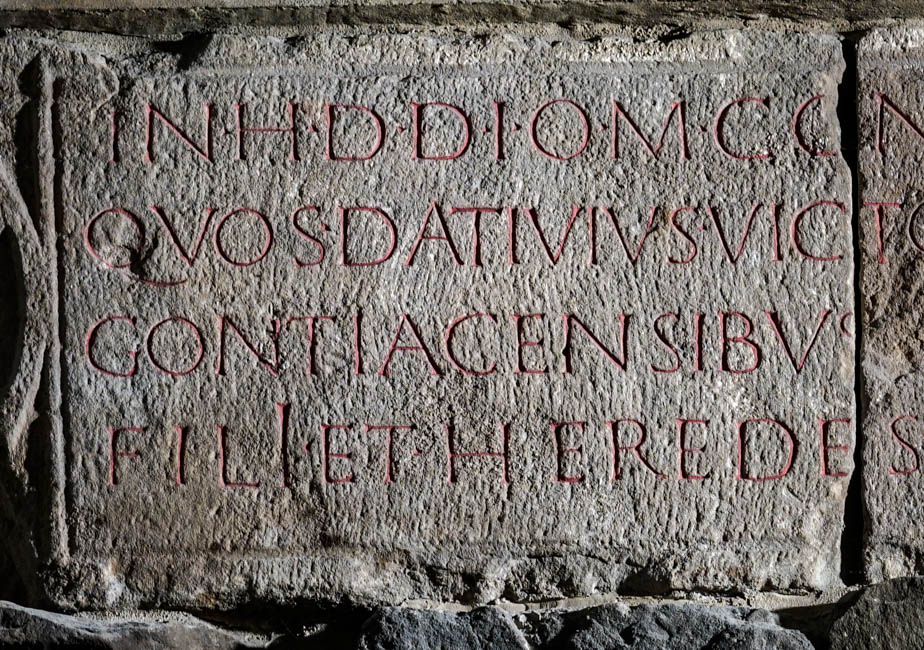 IN·H·D·D·I·O·M·C·CON
QVOS·DATIVIVS·VICTO
GONTIACENSIBVS
FILI·ET·HEREDES